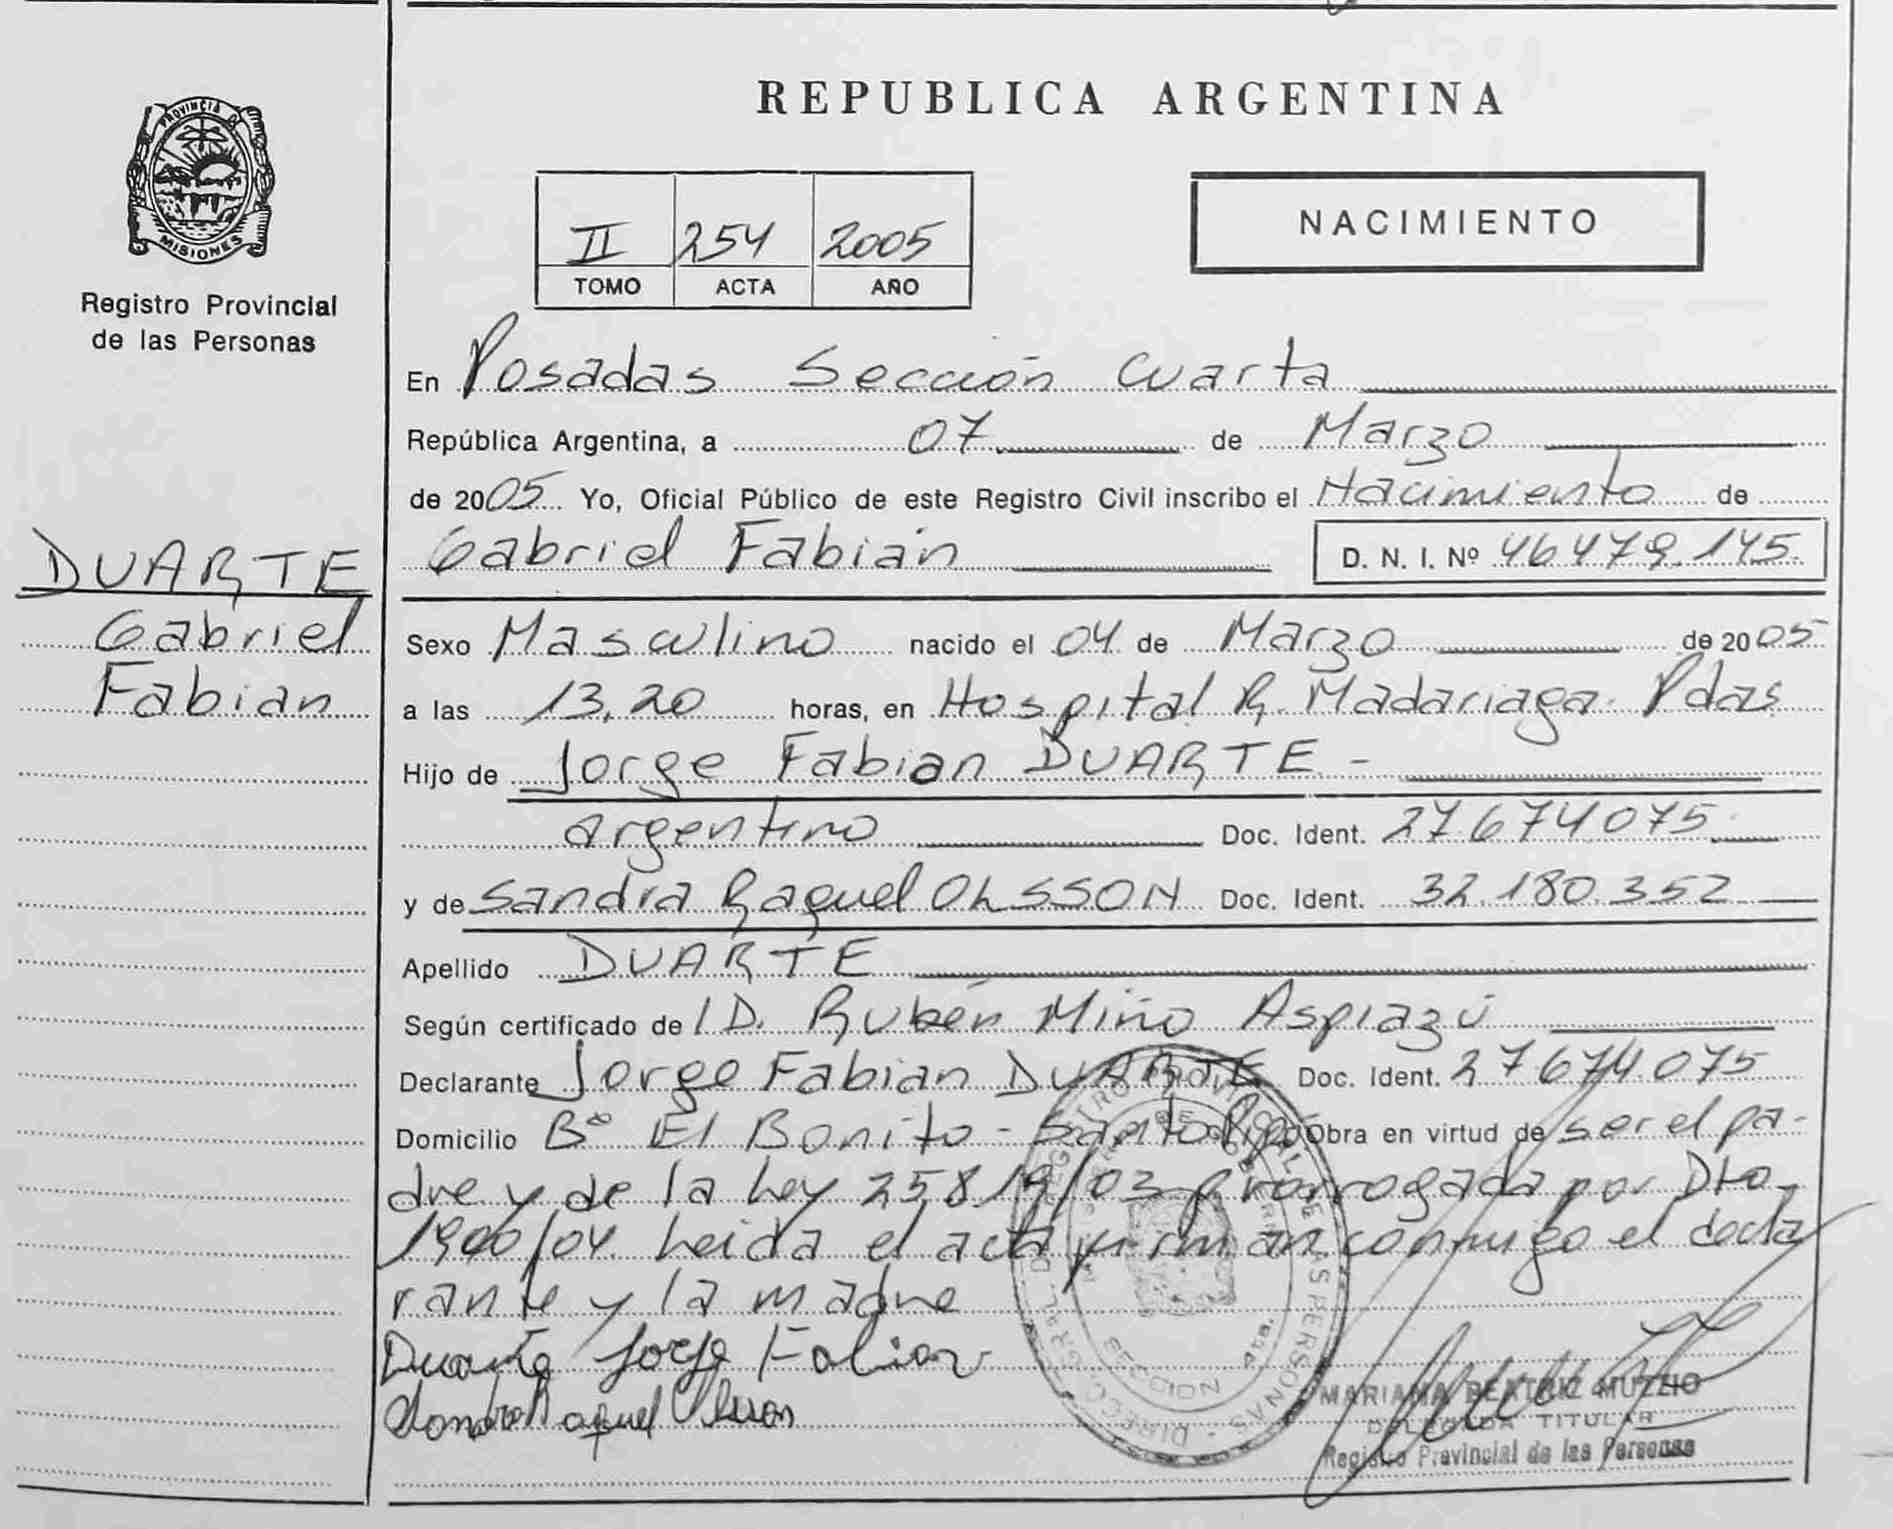 REPUBLICA ARGENTINA
PROVINCIA DE
MISIONES
Registro Provincial
de las Personas
NACIMIENTO
II 254 2005
TOMO ACTA AÑO
En Posadas Sección Cuarta
República Argentina, a 07 de Marzo
de 2005 Yo, Oficial Público de este Registro Civil inscribo el Nacimiento de
Gabriel Fabián D. N. I. Nº 46479.145.
DUARTE
Gabriel
Fabian
Sexo Masculino nacido el 04 de Marzo de 2005
a las 13,20 horas, en Hospital R. Madariaga. Pdas
Hijo de Jorge Fabian DUARTE -
argentino Doc. Ident. 27.674075
y de Sandra Raquel OLSSON Doc. Ident. 32.180.352
Apellido DUARTE
Según certificado de I D. Rubén Miño Aspiazú
Declarante Jorge Fabian DUARTE Doc. Ident. 27674.075
Domicilio Bº El Bonito - Santo Obra en virtud de ser el pa-
dre y de la Ley 25.819/03 prorrogada por Dto
1900/04. Leida el acta firman conmigo el decla
rante y la madre
Duarte Jorge Fabian
Sandra Raquel Olsson
SECCION 4ta.
MARIANA BEATRIZ MUZZIO
DELEGADA TITULAR
Registro Provincial de las Personas